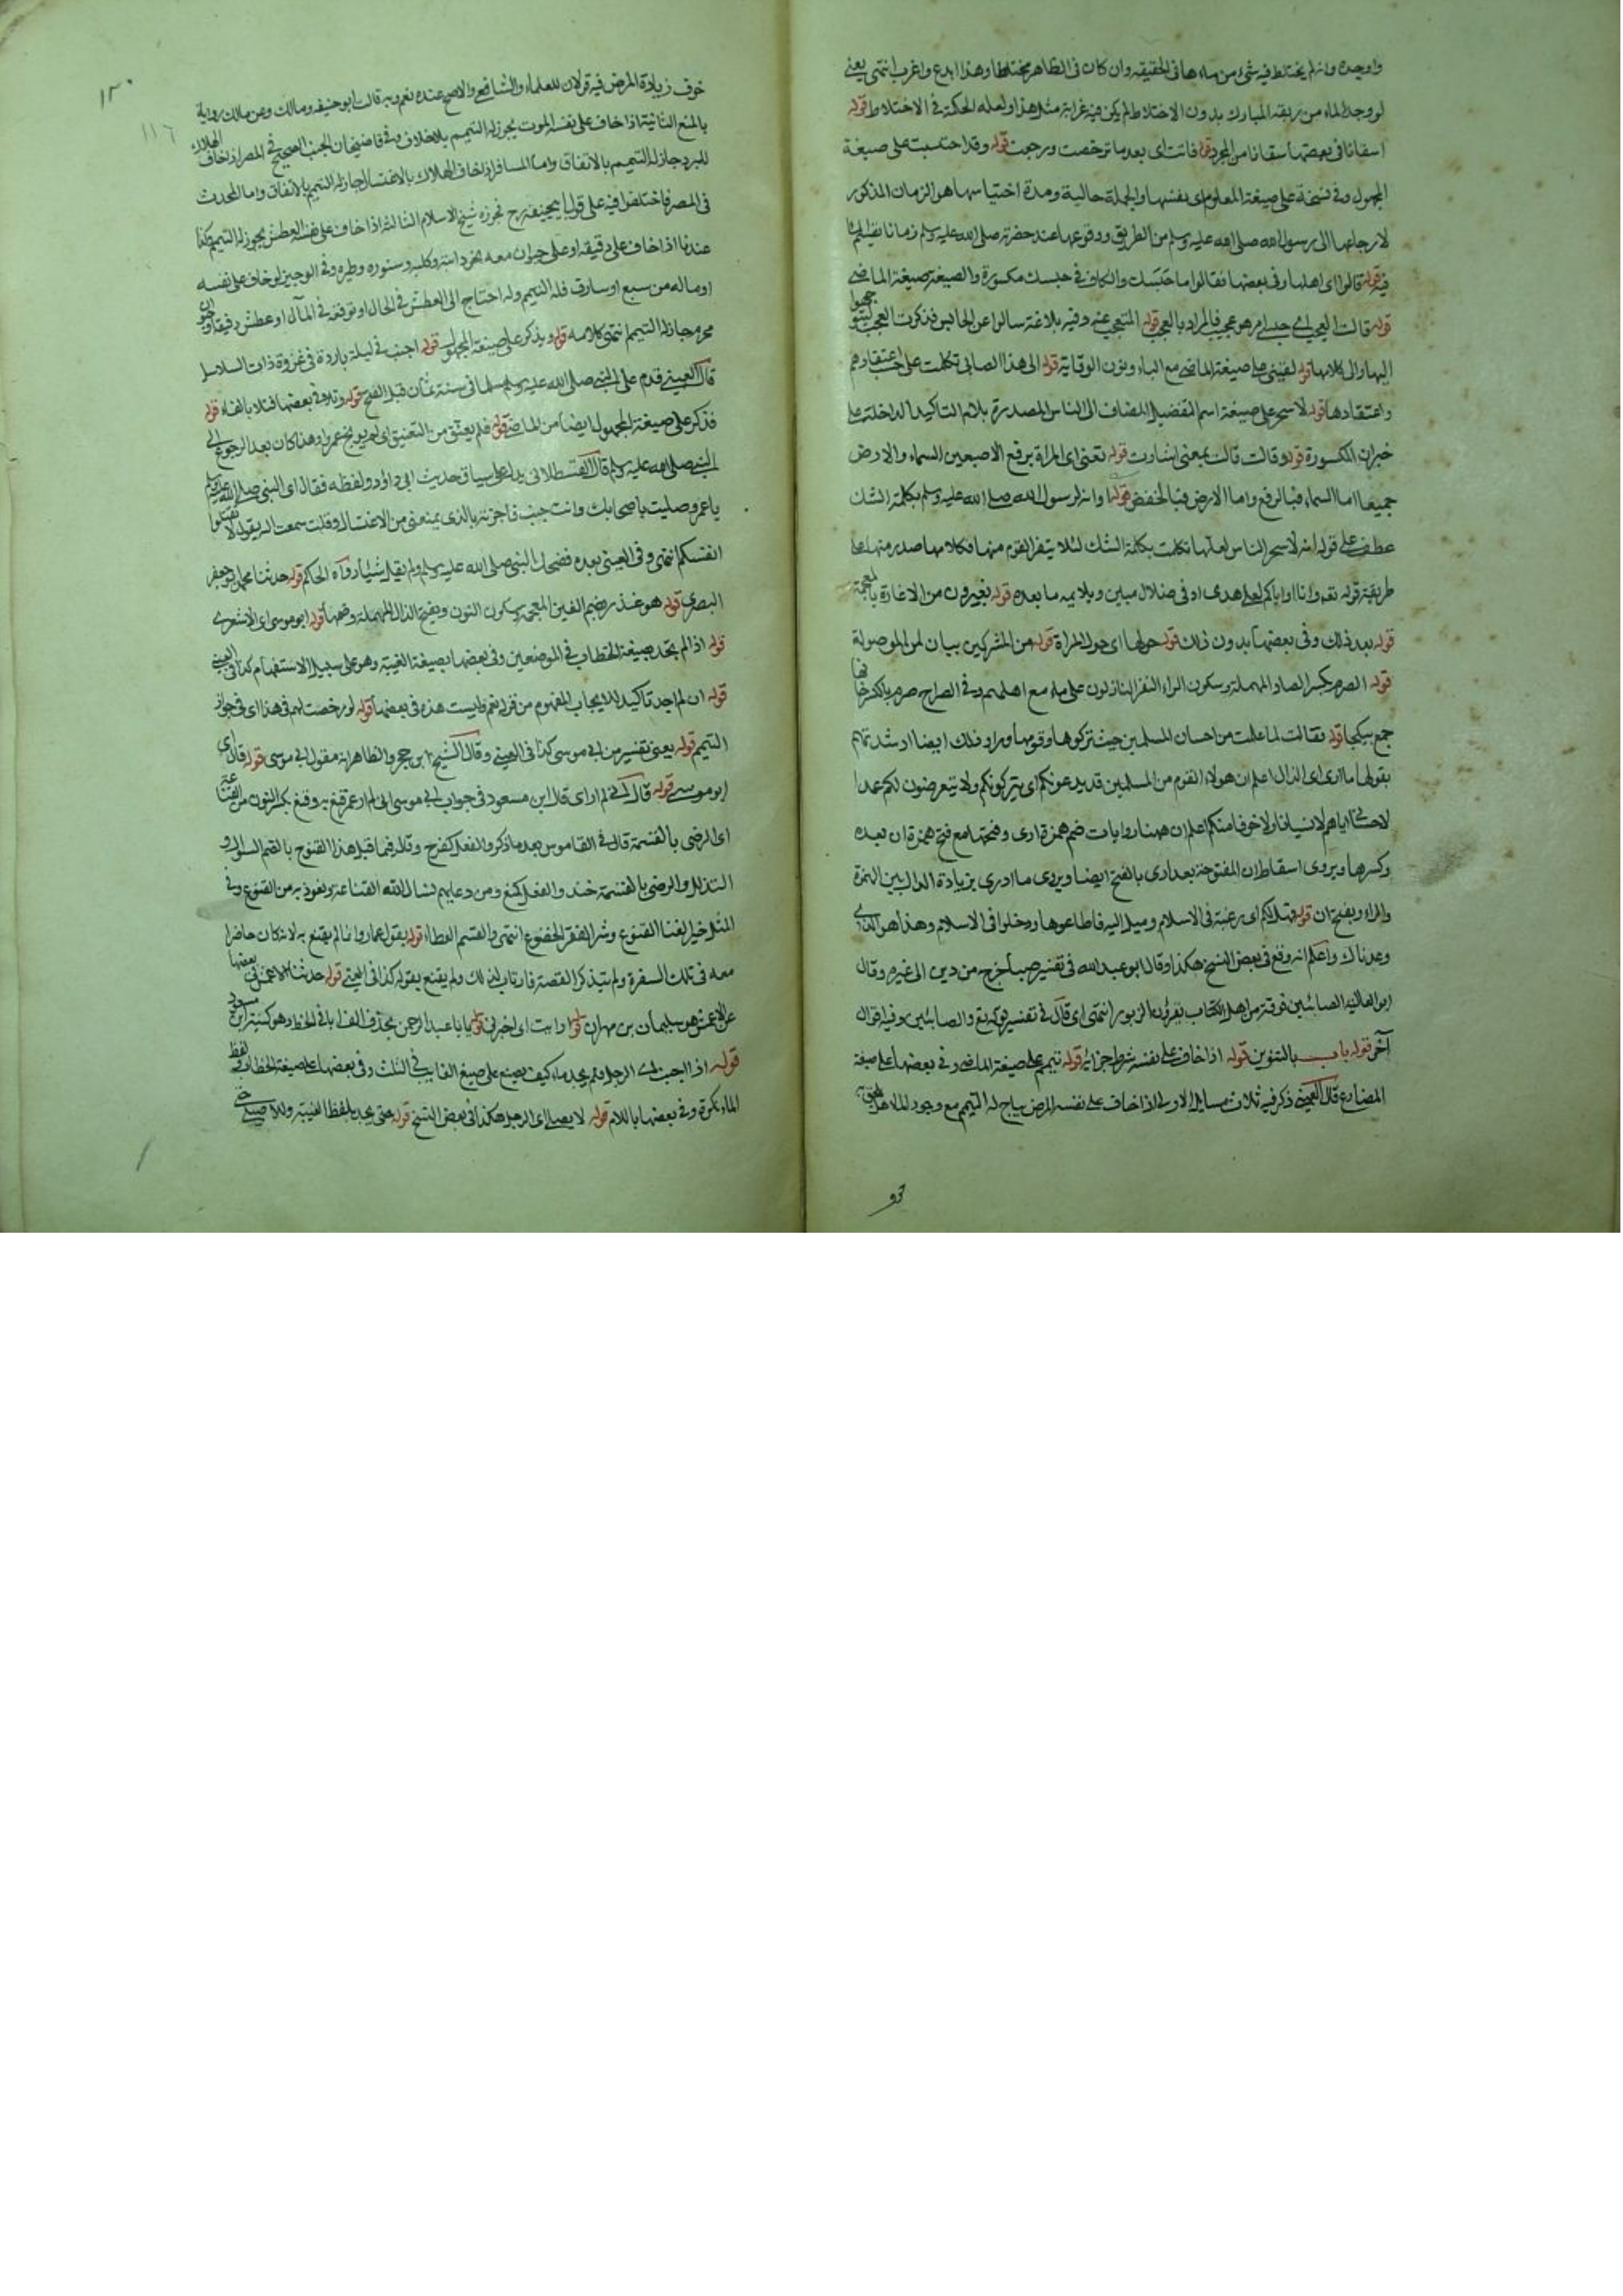 واوجده وانه لم يختلط فيه شئ من ماءها في الحقيقة وان كان في الظاهر مختلطا وهذا ابدع واغرب انتهى يعني
لو وجد الماء من بركته المبارك بدون الاختلاط لم يكن فيه غرابة مثل هذا ولعله الحكمة في الاختلاط قوله
اسقانا في بعضها سقانا من المجرد قوله فاتت اى بعد ما ترخصت ورجعت قوله وقد احتبست على صيغة
المجهول وفي نسخة على صيغة المعلوم اى بنفسها والجملة حالية ومدة احتباسها هو الزمان المذكور
لارجاعها الى رسول الله صلى الله عليه وسلم من الطريق ووقوعها عند حضرته صلى الله عليه وسلم زمانا
فيه قوله قالوا اى اهلها وفي بعضها فقالوا ما حبسك والكاف في حبسك مكسورة والصيغة صيغة الماضي
قوله قالت العجب اى حبسني امر هو عجب فالمراد بالعجب قوله المتعجب عنه وفيه بلاغة سالوا عن الحابس فذكرت العجب
اليها والى كلامها قوله لقيني على صيغة الماضي مع الياء ونون الوقاية قوله الى هذا الصابي تكلمت على حسب اعتقادهم
واعتقادها قوله لاسحر على صيغة اسم التفضيل المضاف الى الناس المصدرة بلام التاكيد الداخلة على
خبر ان المكسورة قوله وقالت قالت بمعنى اشارت قوله تعني اى المراة برفع الاصبعين السماء والارض
جميعا اما السماء فبالرفع واما الارض فبالخفض قوله او انه لرسول الله صلى الله عليه وسلم بكلمة الشك
عطف على قوله انه لاسحر الناس لعلها تكلمت بكلمة الشك لئلا يتنفر القوم منها فكلامها صدر منها على
طريقة قوله تعه وانا او اياكم لعلى هدى او في ضلال مبين ويلايمه ما بعده قوله يغيرون من الاغارة بالمعجمة
قوله بعد ذلك وفي بعضها بدون ذلك قوله حولها اى حول المراة قوله من المشركين بيان لمن الموصولة
قوله الصرم بكسر الصاد المهملة وسكون الراء النفر النازلون على ماء مع اهلهم وفي الصراح صرم بالكسر
جمع يكجا قوله فقالت لما علمت من احسان المسلمين حيث تركوها وقومها وراء ذلك ايضا ارشدتهم
بقولها ما ارى اى الذى اعلم ان هولاء القوم من المسلمين قد يدعونكم اى يتركونكم ولا يتعرضون لكم عمدا
لا نسيانا ولا خوفا منكم اعلم ان ههنا روايات ضم همزة ارى وفتحها مع فتح همزة ان بعده
وكسرها ويروى اسقاط ان المفتوحة بعد ارى بالفتح ايضا ويروى ما ادرى بزيادة الدال بين الهمزة
والراء وبفتح ان قوله فهل لكم اى رغبة في الاسلام وميل اليه فاطاعوها ودخلوا في الاسلام وهذا هو الذى
وعدناك واعلم انه وقع في بعض النسخ هكذا وقال ابو عبد الله في تفسير صبأ خرج من دين الى غيره وقال
ابو العالية الصابئين فرقة من اهل الكتاب يقرؤن الزبور انتهى اى قال في تفسير قوله تع والصابئين وفيه اقوال
آخر قوله باب بالتنوين قوله اذا خاف على نفسه شرط جزائه قوله تيمم على صيغة الماضي وفي بعضها على صيغة
المضارع قال العيني ذكر فيه ثلاث مسايل الاولى اذا خاف على نفسه المرض يباح له التيمم مع وجود الماء
١٢٠
١١٦
خوف زيادة المرض فيه قولان للعلماء والشافعي والاصح عنده نعم وبه قالت ابو حنيفه ومالك وعن مالك رواية
بالمنع الثانية اذا خاف على نفسه الموت يجوز له التيمم بلا خلاف وفي قاضيخان الجنب الصحيح في المصر اذا خاف الهلاك
للبرد جاز له التيمم بالاتفاق واما المسافر اذا خاف الهلاك بالاغتسال جاز له التيمم بالاتفاق واما المحدث
في المصر فاختلفوا فيه على قول ابيحنيفة رح فجوزه شيخ الاسلام الثالثة اذا خاف على نفسه العطش يجوز له التيمم وكذا
عندنا اذا خاف على رفيقه او على حيوان معه نحو دابته وكلبه وسنوره وطيره وفي الوجيز لو خاف على نفسه
او ماله من سبع او سارق فله التيمم وله احتاج الى العطش في الحال او توقعه في المآل او عطش رفيقه او حيوان
محرم جاز له التيمم انتهى كلامه قوله ويذكر على صيغة المجهول قوله اجنب في ليلة باردة في غزوة ذات السلاسل
قال العيني قدم على النبي صلى الله عليه وسلم مسلما في سنة ثمان قبل الفتح قوله وتلا وفي بعضها فتلا بالفاء قوله
فذكر على صيغة المجهول ايضا من الماضي قوله فلم يعنف من التعنيف اى لم يوبخ عمرا وهذا كان بعد الرجوع الى
النبي صلى الله عليه وسلم قال القسطلاني يدل على سياق حديث ابي داؤد ولفظه فقال اى النبي صلى الله عليه وسلم
يا عمرو صليت باصحابك وانت جنب فاخبرته بالذى يمنعني من الاغتسال وقلت سمعت الله يقول لا تقتلوا
انفسكم انتهى وفي العيني بعده فضحك النبي صلى الله عليه وسلم ولم يقل شيئا رواه الحاكم قوله حدثنا محمد هو ابن جعفر
البصري قوله هو غندر بضم الغين المعجمة وسكون النون وبفتح الدال المهملة وضمها قوله ابو موسى اى الاشعرى
قوله اذا لم تجد بصيغة الخطاب في الموضعين وفي بعضها بصيغة الغيبة وهو على سبيل الاستفهام كذا في العيني
قوله ان لم اجد تاكيد للايجاب المفهوم من قوله نعم وليست هذه في بعضها قوله لو رخصت لهم في هذا اى في جواز
التيمم قوله يعني تفسير من ابي موسى كذا في العيني وقال الشيخ ابن حجر والظاهر انه مقول ابي موسى قوله قال اى
ابو موسى قوله قال اني لم ار اى قال ابن مسعود في جواب ابي موسى اني لم ار عمر قنع به وقنع بكسر النون من القناعة
اى الرضى بالقسمة قال في القاموس بعد ما ذكر والفعل كفرح وقال فيما قبل هذا القنوع بالضم السوال و
التذلل والرضى بالقسمة ضد والفعل كمنع ومن دعايهم نسال الله القناعة ونعوذ به من القنوع وفي
المثل خير الغنا القنوع وشر الفقر الخضوع انتهى والقسم العطاء قوله بقول عمار وانما لم يقنع به لانه كان حاضرا
معه في تلك السفرة ولم يتذكر القصة فارتاب لذلك ولم يقنع بقوله كذا في العيني قوله حدثنا الاعمش في بعضها
عن الاعمش هو سليمان بن مهران قوله ارايت اى اخبرني قوله يابا عبد الرحمن بحذف الف ابا في الخط وهو كنية ابن مسعود
قوله اذا اجنب اى الرجل فلم يجد ماء كيف يصنع على صيغ الغايب في الثلث وفي بعضها على صيغة الخطاب ولفظ
الماء نكرة وفي بعضها باللام قوله لا يصلى اى الرجل هكذا في بعض النسخ قوله حتى يجد بلفظ الغيبة وللاصيلي حتى